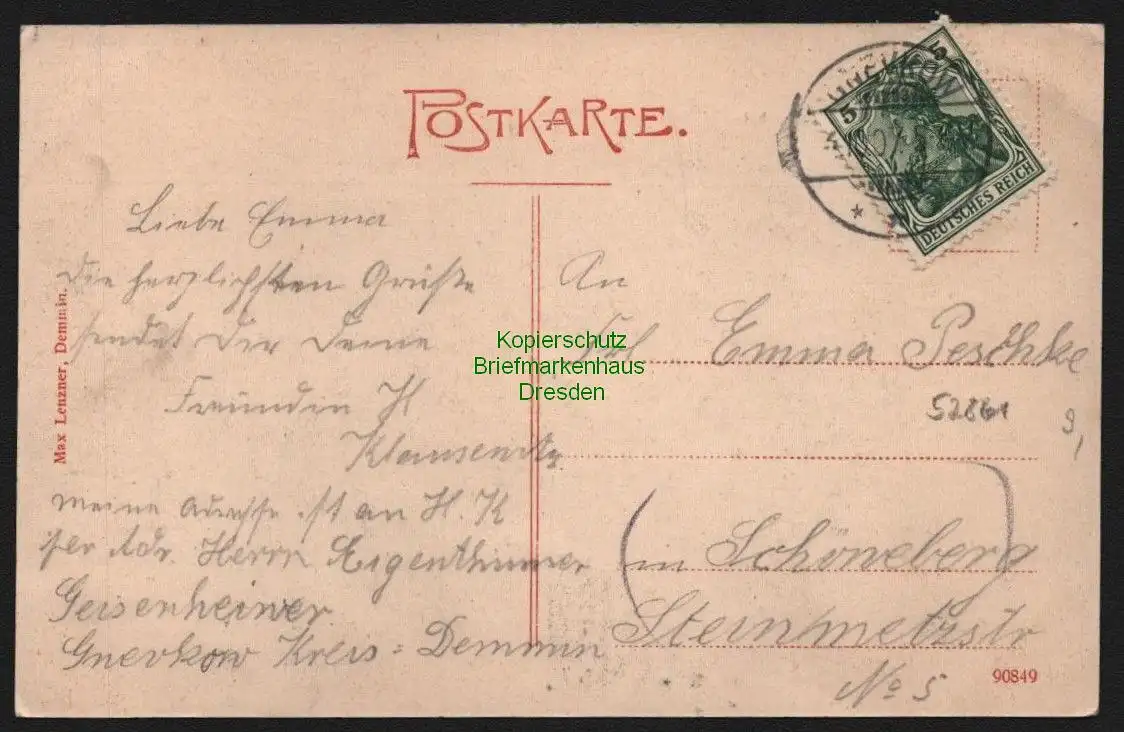 POSTKARTE.
5
5
DEUTSCHES REICH
Liebe Emma
die herzlichsten Grüße
sendet Dir Deine
Freundin H
Klausenitz
meine Adresse ist an H. K
per Adr. Herrn Eigenthümer
Geisenheiner
Gnevkow Kreis = Demmin
Max Lenzner, Demmin.
An
Frl. Emma Peschke
52861
9,
in Schöneberg
Steinmetzstr
No 5
90849
Kopierschutz
Briefmarkenhaus
Dresden